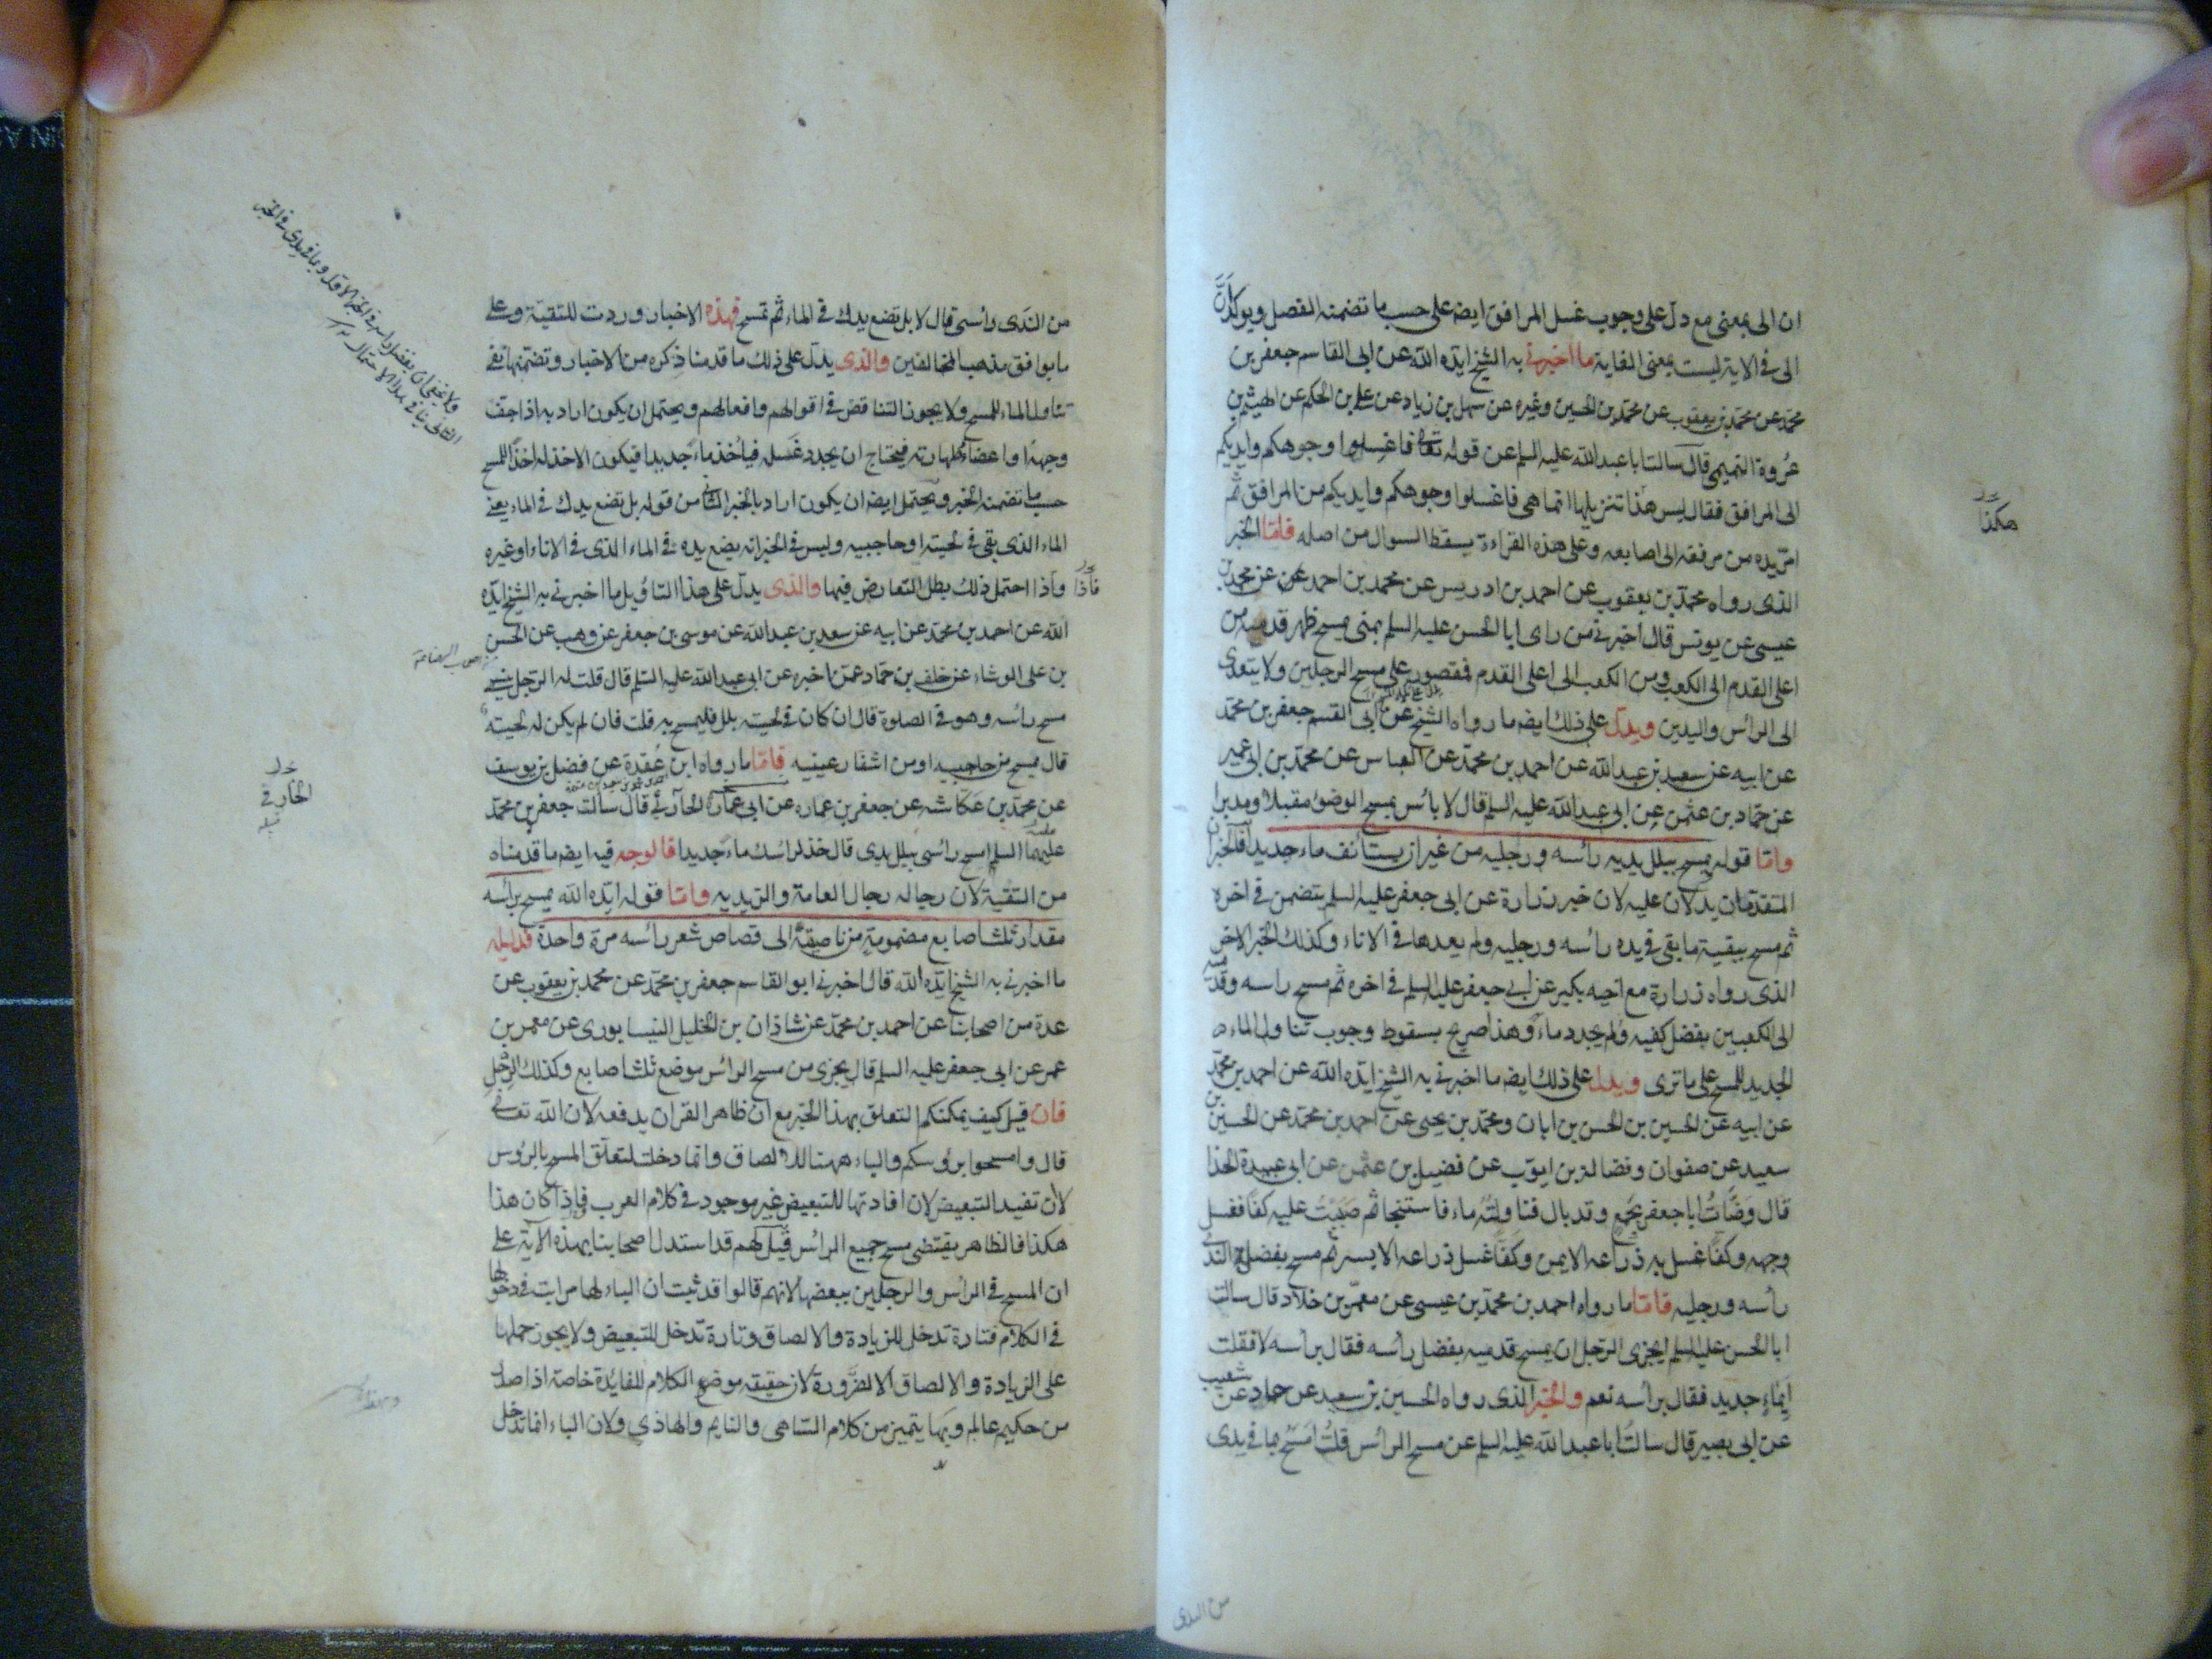 ان الى بمعنى مع دل على وجوب غسل المرافق ايضا على حسب ما تضمنه الفصل ويؤكد ان
الى فى الاية ليست بمعنى الغاية ما اخبرنى به الشيخ ايده الله عن ابى القاسم جعفر بن
محمد عن محمد بن يعقوب عن محمد بن الحسين وغيره عن سهل بن زياد عن على بن الحكم عن الهيثم بن
عروة التميمى قال سالت ابا عبد الله عليه السلم عن قوله تعالى فاغسلوا وجوهكم وايديكم
الى المرافق فقال ليس هذا تنزيلها انما هى فاغسلوا وجوهكم وايديكم من المرافق ثم
هكذا
امر يده من مرفقه الى اصابعه وعلى هذه القراءة يسقط السوال من اصله فاما الخبر
الذى رواه محمد بن يعقوب عن احمد بن ادريس عن محمد بن احمد عن محمد بن
عيسى عن يونس قال اخبرنى من راى ابا الحسن عليه السلم بمنى يمسح ظهر قدميه من
اعلى القدم الى الكعب ومن الكعب الى اعلى القدم فمقصور على مسح الرجلين ولا يتعدى
الى الرأس واليدين ويدل على ذلك ايضا ما رواه الشيخ عن ابى القسم جعفر بن محمد
عن ابيه عن سعد بن عبد الله عن احمد بن محمد عن العباس عن محمد بن ابى عمير
عن حماد بن عثمن عن ابى عبد الله عليه السلم قال لا بأس بمسح الوضوء مقبلا ومدبرا
واما قوله يمسح ببلل يديه رأسه ورجليه من غير ان يستأنف ماء جديدا فالخبران
المتقدمان يدلان عليه لان خبر زرارة عن ابى جعفر عليه السلم يتضمن فى اخره
ثم مسح ببقية ما بقى فى يده رأسه ورجليه ولم يعدها فى الاناء وكذلك الخبر الاخر
الذى رواه زرارة مع اخيه بكير عن ابى جعفر عليه السلم فى اخره ثم مسح راسه وقدميه
الى الكعبين بفضل كفيه ولم يجدد ماء وهذا صريح بسقوط وجوب تناول الماء
الجديد للمسح على ما ترى ويدل على ذلك ايضا ما اخبرنى به الشيخ ايده الله عن احمد بن محمد
عن ابيه عن الحسين بن الحسن بن ابان ومحمد بن يحيى عن احمد بن محمد عن الحسين بن
سعيد عن صفوان وفضالة بن ايوب عن فضيل بن عثمن عن ابى عبيدة الحذا
قال وضأت ابا جعفر بجمع وقد بال فناولته ماء فاستنجا ثم صببت عليه كفا فغسل
وجهه وكفا غسل به ذراعه الايمن وكفا غسل ذراعه الايسر ثم مسح بفضلة الندى
رأسه ورجليه فاما ما رواه احمد بن محمد بن عيسى عن معمر بن خلاد قال سالت
ابا الحسن عليه السلم ايجزى الرجل ان يمسح قدميه بفضل رأسه فقال برأسه لا فقلت
ابماء جديد فقال برأسه نعم والخبر الذى رواه الحسين بن سعيد عن حماد عن شعيب
عن ابى بصير قال سالت ابا عبد الله عليه السلم عن مسح الرأس قلت امسح بما فى يدى
من الندى
من الندى رأسى قال لا بل تضع يدك فى الماء ثم تمسح فهذه الاخبار وردت للتقية وعلى
ما يوافق مذهب المخالفين والذى يدل على ذلك ما قدمنا ذكره من الاخبار وتضمنها نفى
تناول الماء للمسح ولا يجوز التناقض فى اقوالهم وافعالهم ويحتمل ان يكون اراد به اذا جف
وجهه او اعضاء طهارته فيحتاج ان يجدد غسله فيأخذ ماء جديدا فيكون الاخذ له اخذا للمسح
حسب ما تضمنه الخبر ويحتمل ايضا ان يكون اراد بالخبر الثانى من قوله بل تضع يدك فى الماء يعنى
الماء الذى بقى فى لحيته او حاجبيه وليس فى الخبر انه يضع يده فى الماء الذى فى الاناء او غيره
فاذا
واذا احتمل ذلك بطل التعارض فيها والذى يدل على هذا التأويل ما اخبرنى به الشيخ ايده
الله عن احمد بن محمد عن ابيه عن سعد بن عبد الله عن موسى بن جعفر عن وهب عن الحسن
بن على الوشاء عن خلف بن حماد عمن اخبره عن ابى عبد الله عليه السلم قال قلت له الرجل ينسى
مسح رأسه وهو فى الصلوة قال ان كان فى لحيته بلل فليمسح به قلت فان لم يكن له لحيته
قال يمسح من حاجبيه او من اشفار عينيه فاما ما رواه ابن عقدة عن فضل بن يوسف
عن محمد بن عكاشه عن جعفر بن عماره عن ابى عمارة الحارثى قال سالت جعفر بن محمد
الحارفى
عليهما السلم امسح رأسى ببلل يدى قال خذ لرأسك ماء جديدا فالوجه فيه ايضا ما قدمناه
من التقية لان رجاله رجال العامة والزيديه واما قوله ايده الله يمسح برأسه
مقدار ثلث اصابع مضمومة من ناصيته الى قصاص شعر رأسه مرة واحدة فدليله
ما اخبرنى به الشيخ ايده الله قال اخبرنى ابو القاسم جعفر بن محمد عن محمد بن يعقوب عن
عدة من اصحابنا عن احمد بن محمد عن شاذان بن الخليل النيسابورى عن معمر بن
عمر عن ابى جعفر عليه السلم قال يجزى من مسح الرأس موضع ثلث اصابع وكذلك الرجل
فان قيل كيف يمكنكم التعلق بهذا الخبر مع ان ظاهر القران يدفعه لان الله تعالى
قال وامسحوا برؤسكم والباء ههنا للالصاق وانما دخلت لتعلق المسح بالرؤس
لان تفيد التبعيض لان افادتها للتبعيض غير موجود فى كلام العرب فاذا كان هذا
هكذا فالظاهر يقتضى مسح جميع الرأس قيل لهم قد استدل اصحابنا بهذه الآية على
ان المسح فى الرأس والرجلين ببعضها لانهم قالوا قد ثبت ان الباء لها مراتب فى دخولها
فى الكلام فتارة تدخل للزيادة والالصاق وتارة تدخل للتبعيض ولا يجوز حملها
على الزيادة والالصاق الا لضرورة لان حقيقه موضع الكلام للفائدة خاصة اذا صدر
من حكيم عالم وبها يتميز من كلام الساهى والنايم والهاذى ولان الباء انما تدخل